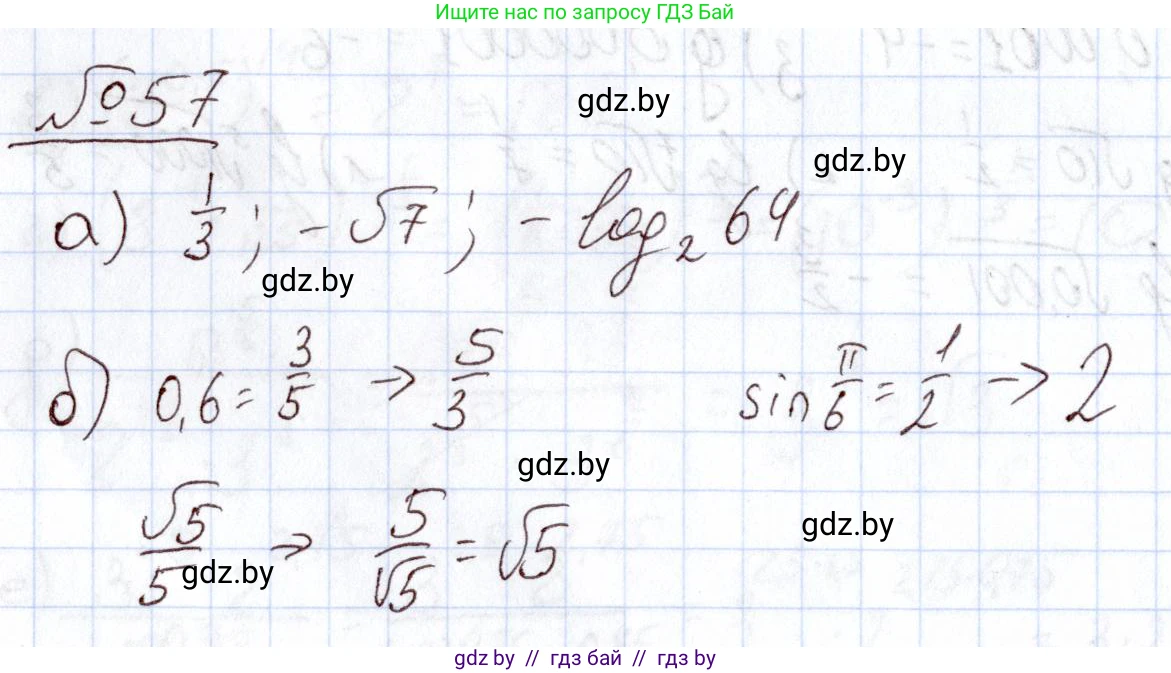 Ищите нас по запросу ГДЗ Бай
№57
gdz.by
gdz.by
а) 1/3 ; -√7 ; - log₂ 64
gdz.by
б) 0,6 = 3/5 → 5/3 sin π/6 = 1/2 → 2
gdz.by
√5/5 → 5/√5 = √5
gdz.by
gdz.by
gdz by // гдз бай // гдз by